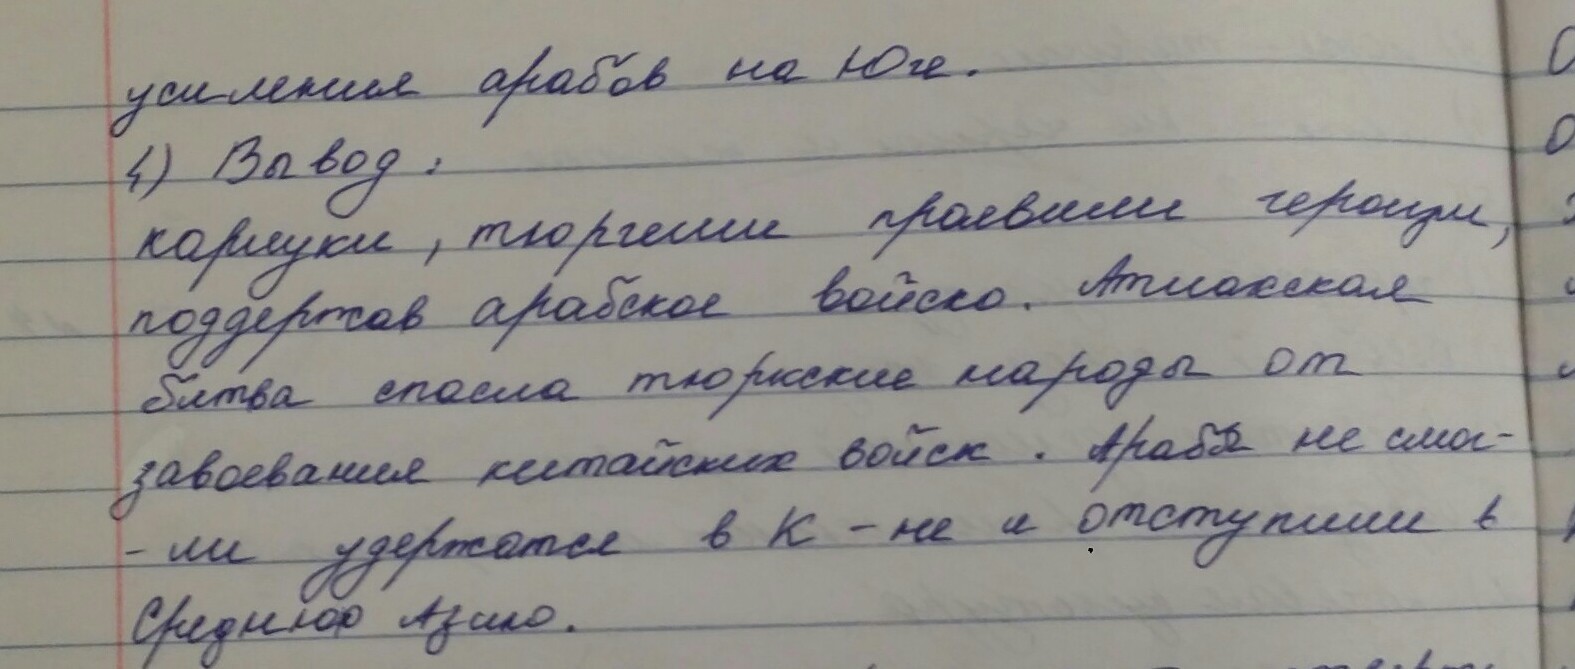 усиления арабов на Юге.
4) Вывод:
карлуки, тюргеши проявили героизм,
поддержав арабское войско. Атлахская
битва спасла тюркские народы от
завоевания китайских войск. Арабы не смог-
-ли удержатся в К-не и отступили в
Среднюю Азию.